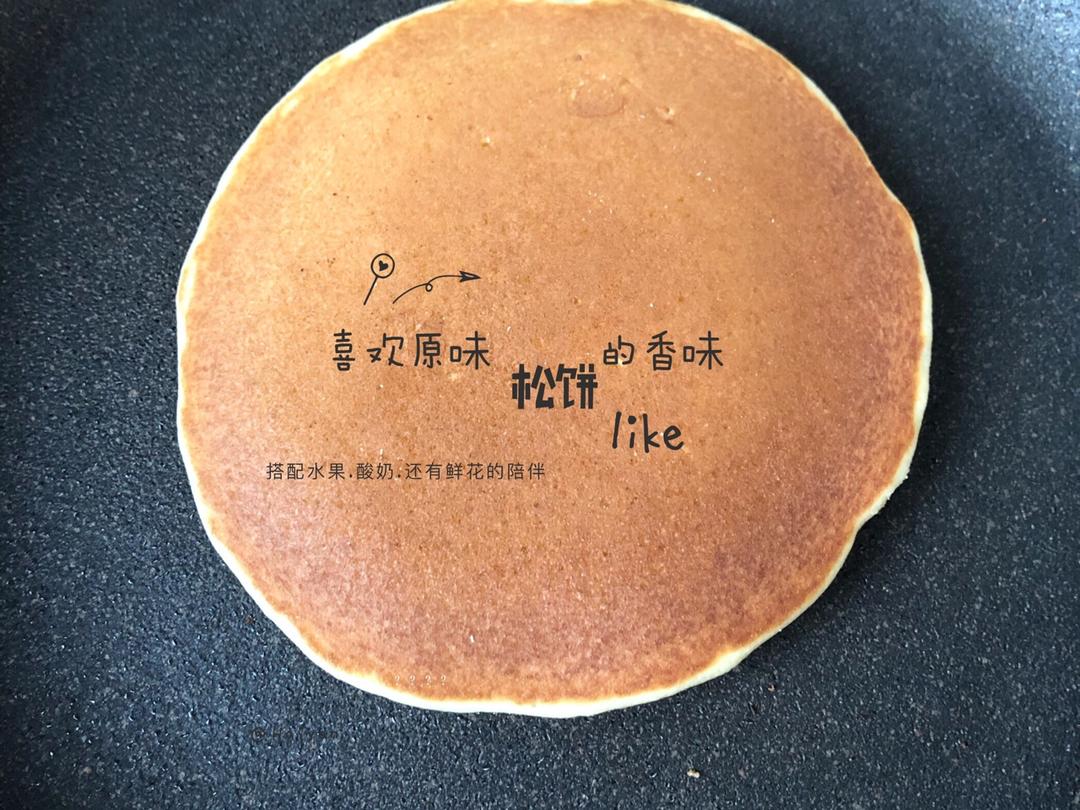 喜欢原味松饼的香味
like
搭配水果.酸奶.还有鲜花的陪伴
????